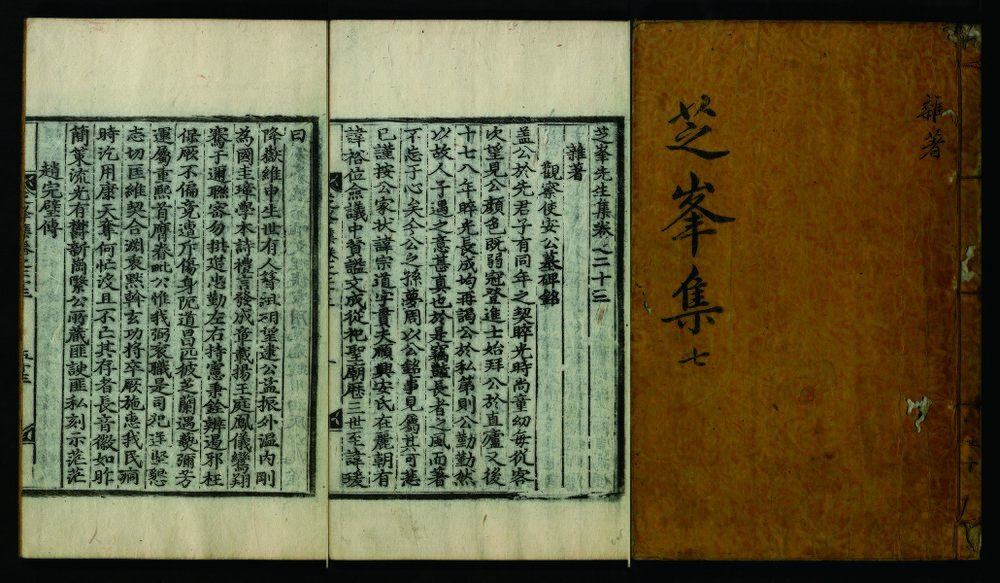 雜著
芝峯集 七
芝峯先生集卷之二十三
雜著
觀察使安公墓碑銘
蓋公於先君子有同年之契睟光時尚童幼每從客
次望見公顏色旣弱冠登進士始拜公於直廬又後
十七八年睟光長成均再謁公於私第則公勤勤然
以故人子遇之意甚真也於是竊艶長者之風而著
不忘于心矣今公之孫夢周以公銘事見屬其可悲
已謹按公家狀諱宗道字貴夫順興安氏在麗朝有
諱裕位僉議中贊謚文成從祀聖廟歷三世至諱瑗
曰
降嶽維申生世有人替望逮公孟振外溫內剛
為國圭璋學本詩禮言發成章載揚王庭鳳儀鸞翔
騫予邇聯容勿拱忠勤左右持憲秉銓辨遏邪枉
保厥不偏竟遭斤傷身阨道昌匹彼芝蘭遇爇彌芳
運屬重熙首膺眷毗公惟我弼袞職是司危堅懇
志切匡維契合淵衷煕斡玄功捋卒厥施惠我民痌
時汔用康天奪何忙沒且不亡其有者長音徽如昨
簡策流光有欝新崗緊公所藏匪諛匪私刻示茫茫
趙完璧傳